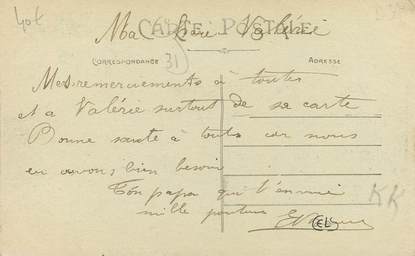 40t
CARTE POSTALE
Ma chère Valérie
CORRESPONDANCE
31
ADRESSE
Mes remerciements à toutes
et a Valérie surtout de sa carte
Bonne santé à touts car nous
en avons bien besoin
Ton papa qui
mille
CEL
KK